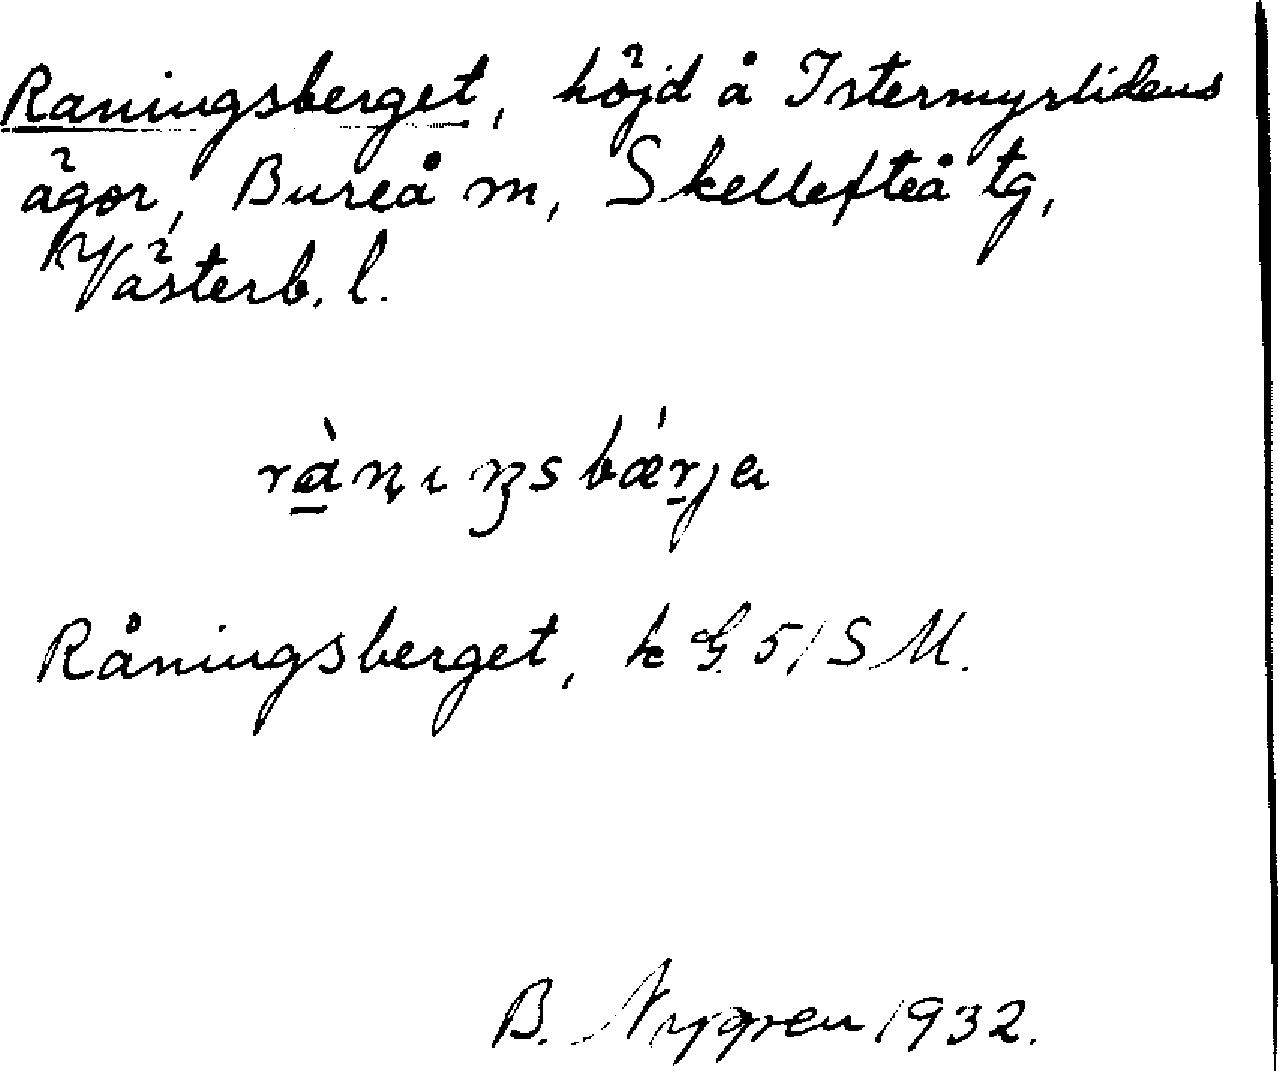 Raningsberget, höjd å Istermyrlidens
ägor, Bureå m, Skellefteå tg,
Västerb. l.
Råningsberget, k G. 51 SM.
B. Nygren 1932.